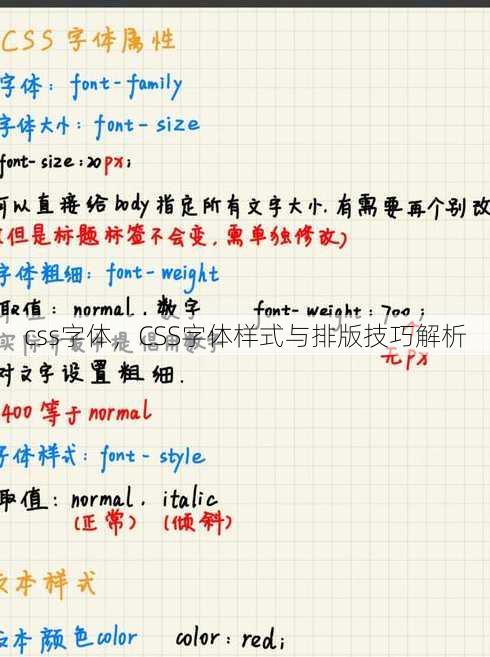 CSS字体属性
字体：font-family
字体大小：font-size
font-size：20px；
可以直接给body指定所有文字大小.有需要再个别改
但是标题标签不会变，需单独修改）
字体粗细：font-weight
取值：normal．数字 font-weight：700；
css字体，CSS字体样式与排版技巧解析
无px
对文字设置粗细．
400等于normal
字体样式：font-style
取值：normal．italic
（正常）（倾斜）
文本样式
文本颜色color color：red；